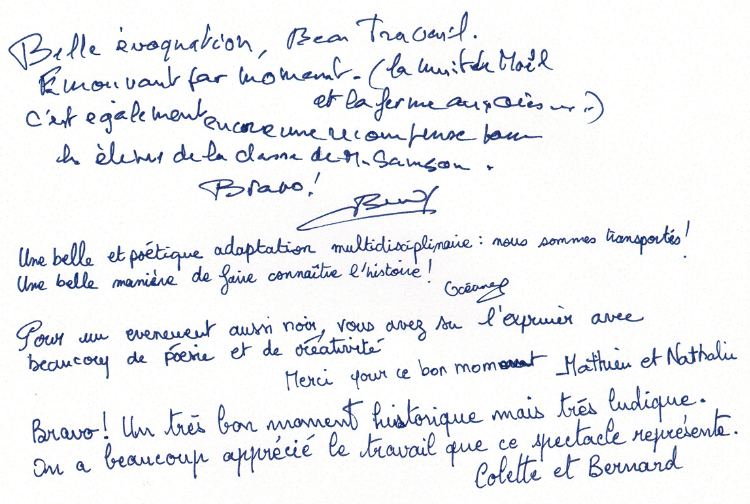 Belle évoquation, Beau Travail.
Emouvant par moment. (la nuit de Noël
et la ferme aux oies ....)
c'est également encore une recompense pour
les élèves de la classe de M. Samson.
Bravo!
Une belle et poétique adaptation multidisciplinaire : nous sommes transportés!
Une belle manière de faire connaître l'histoire!
Océane
Pour un evenement aussi noir, vous avez su l'exprimer avec
beaucoup de poesie et de créativité
Merci pour ce bon moment Mathieu et Nathalie
Bravo! Un très bon moment historique mais très ludique.
On a beaucoup apprécié le travail que ce spectacle représente.
Colette et Bernard